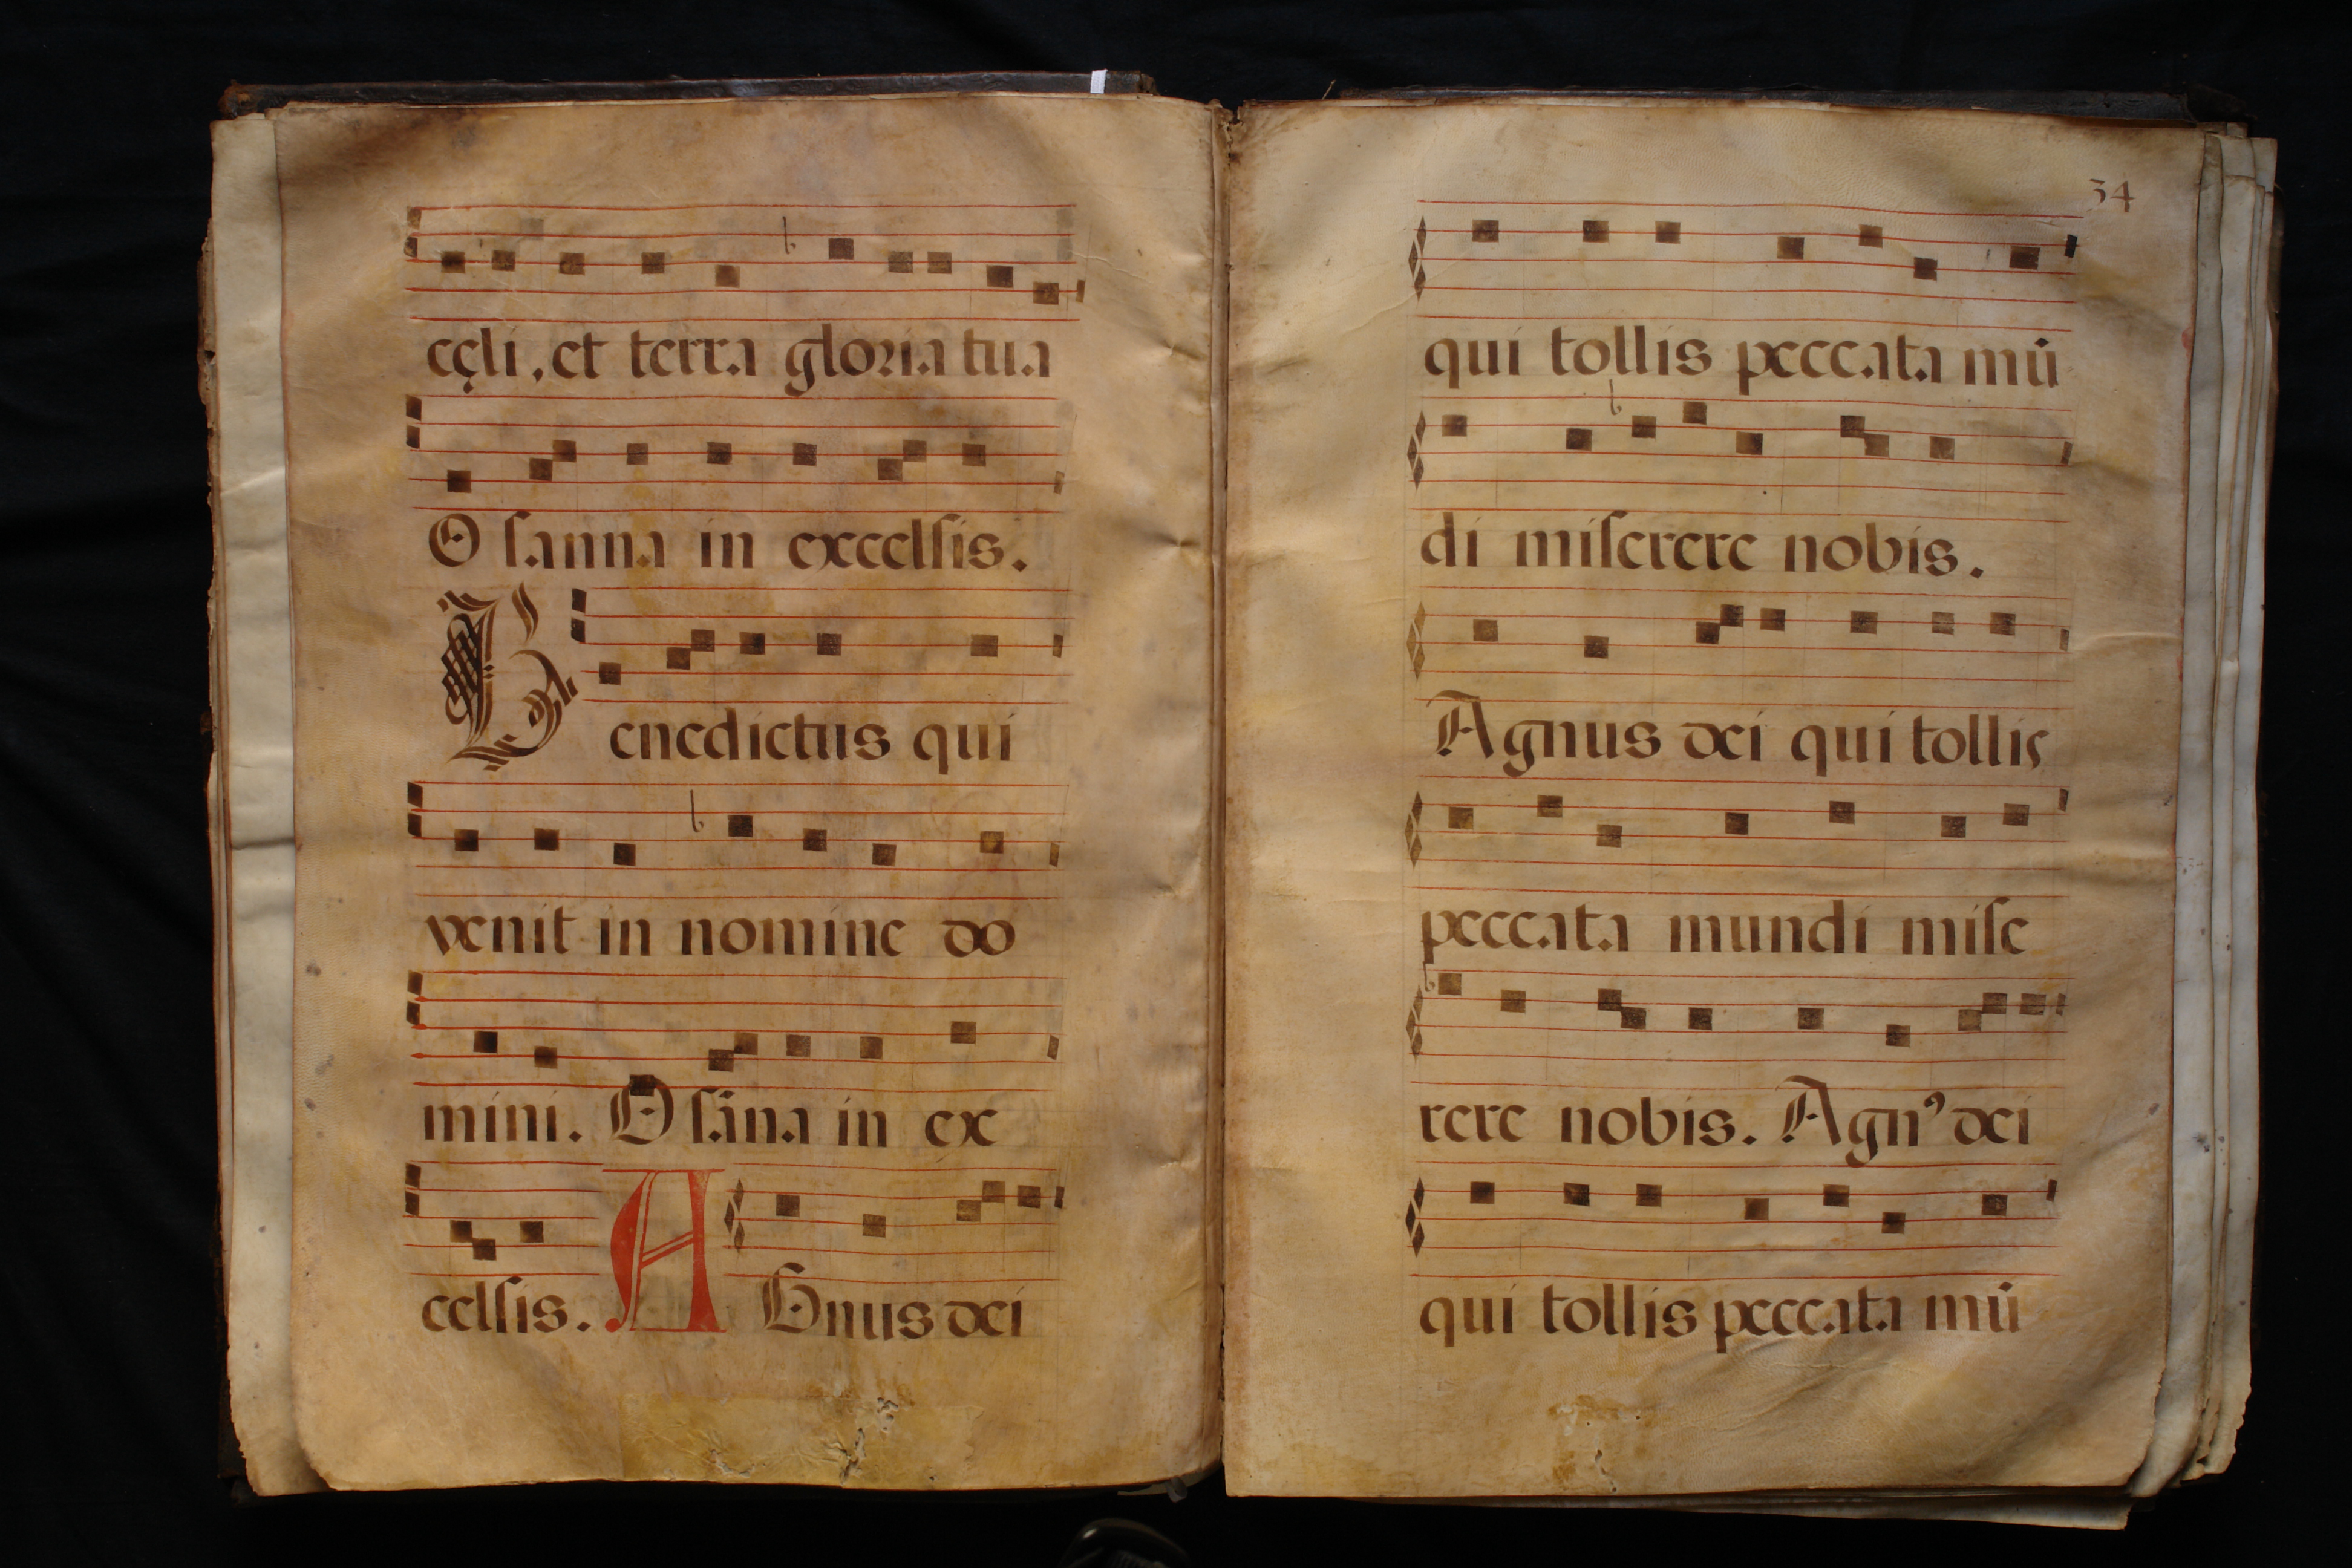 cęli, et terra gloria tua
O sanna in excelsis.
Benedictus qui
venit in nomine do
mini. O sāna in ex
celsis. AGnus dei
34
qui tollis peccata mū
di miserere nobis.
Agnus dei qui tollis
peccata mundi mise
rere nobis. Agnꝰ dei
qui tollis peccata mū